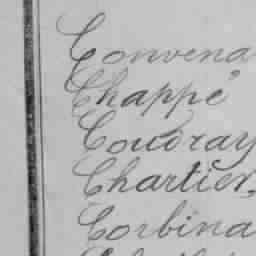 Convena
Chappé
Coudray
Chartier,
Corbina